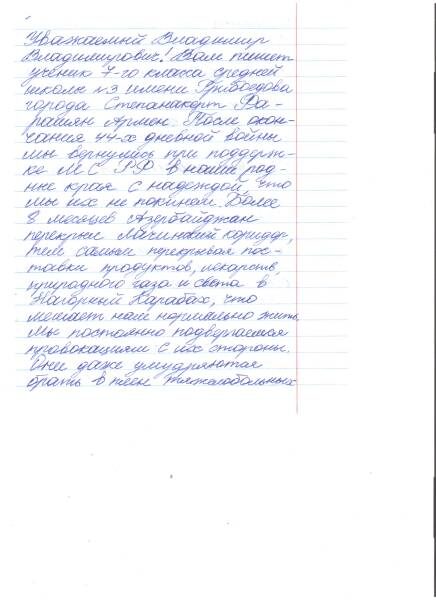 Уважаемый Владимир
Владимирович! Вам пишет
ученик 7-го класса средней
школы н3 имени Грибоедова
города Степанакерт Ба-
рашян Армен. После окон-
чания 44-х дневной войны
мы вернулись при поддерж-
ке МС РФ в наши род-
ные края с надеждой, что
мы их не покинем. Более
8 месяцев Азербайджан
перекрыл Лачинский коридор,
тем самым перекрывая пос-
тавки продуктов, лекарств,
природного газа и света в
Нагорный Карабах, что
мешает нам нормально жить.
Мы постоянно подвергаемся
провокациям с их стороны.
Они даже умудряются
брать в плен тяжелобольных